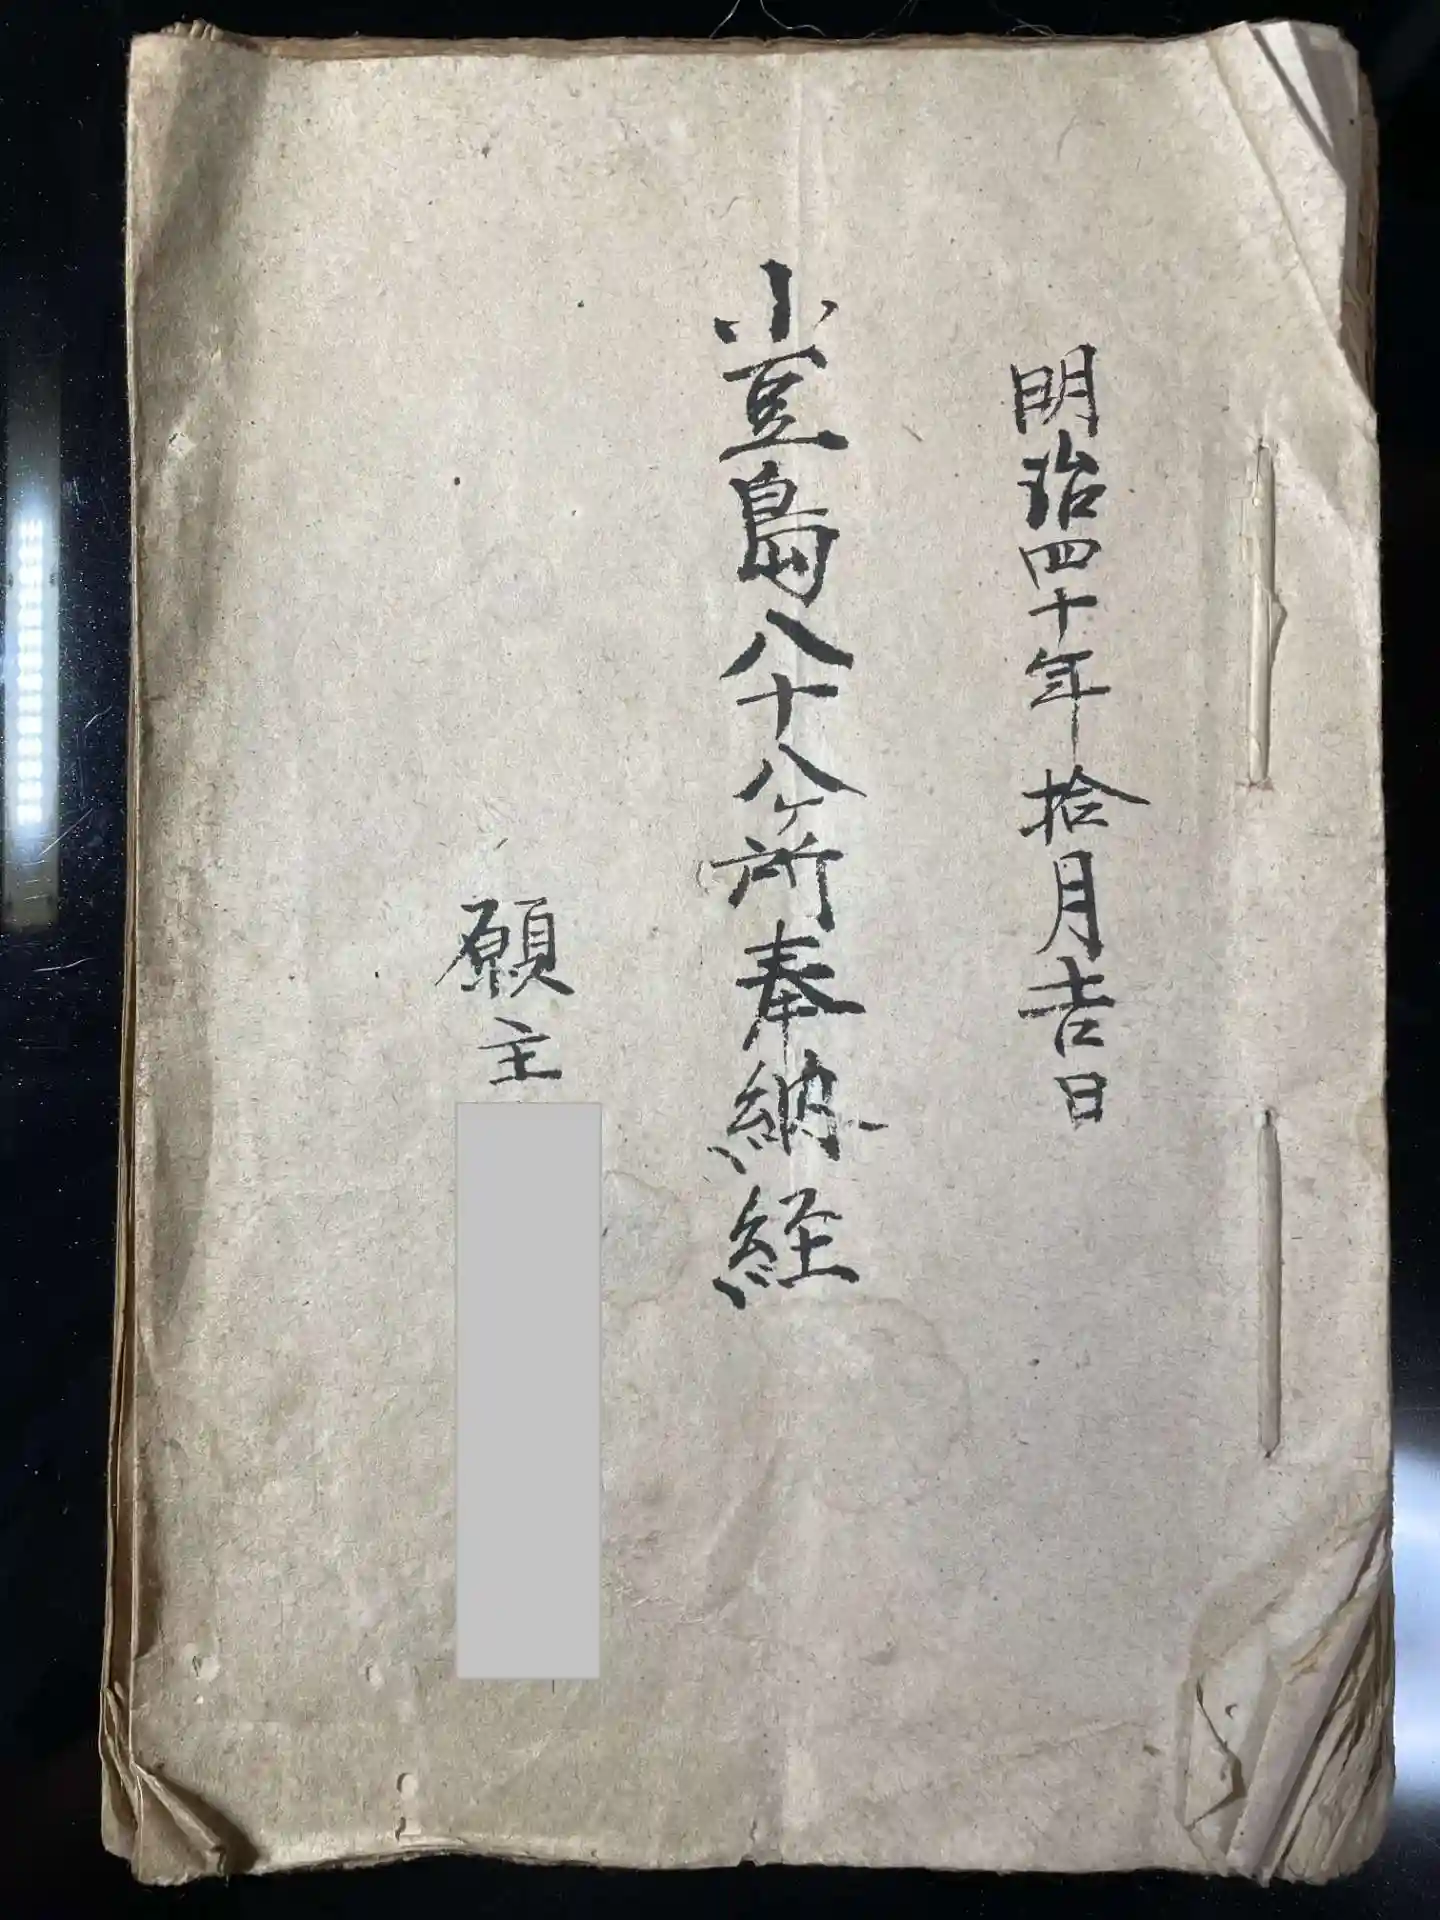 明治四十年拾月吉日
小豆島八十八ヶ所奉納経
願主